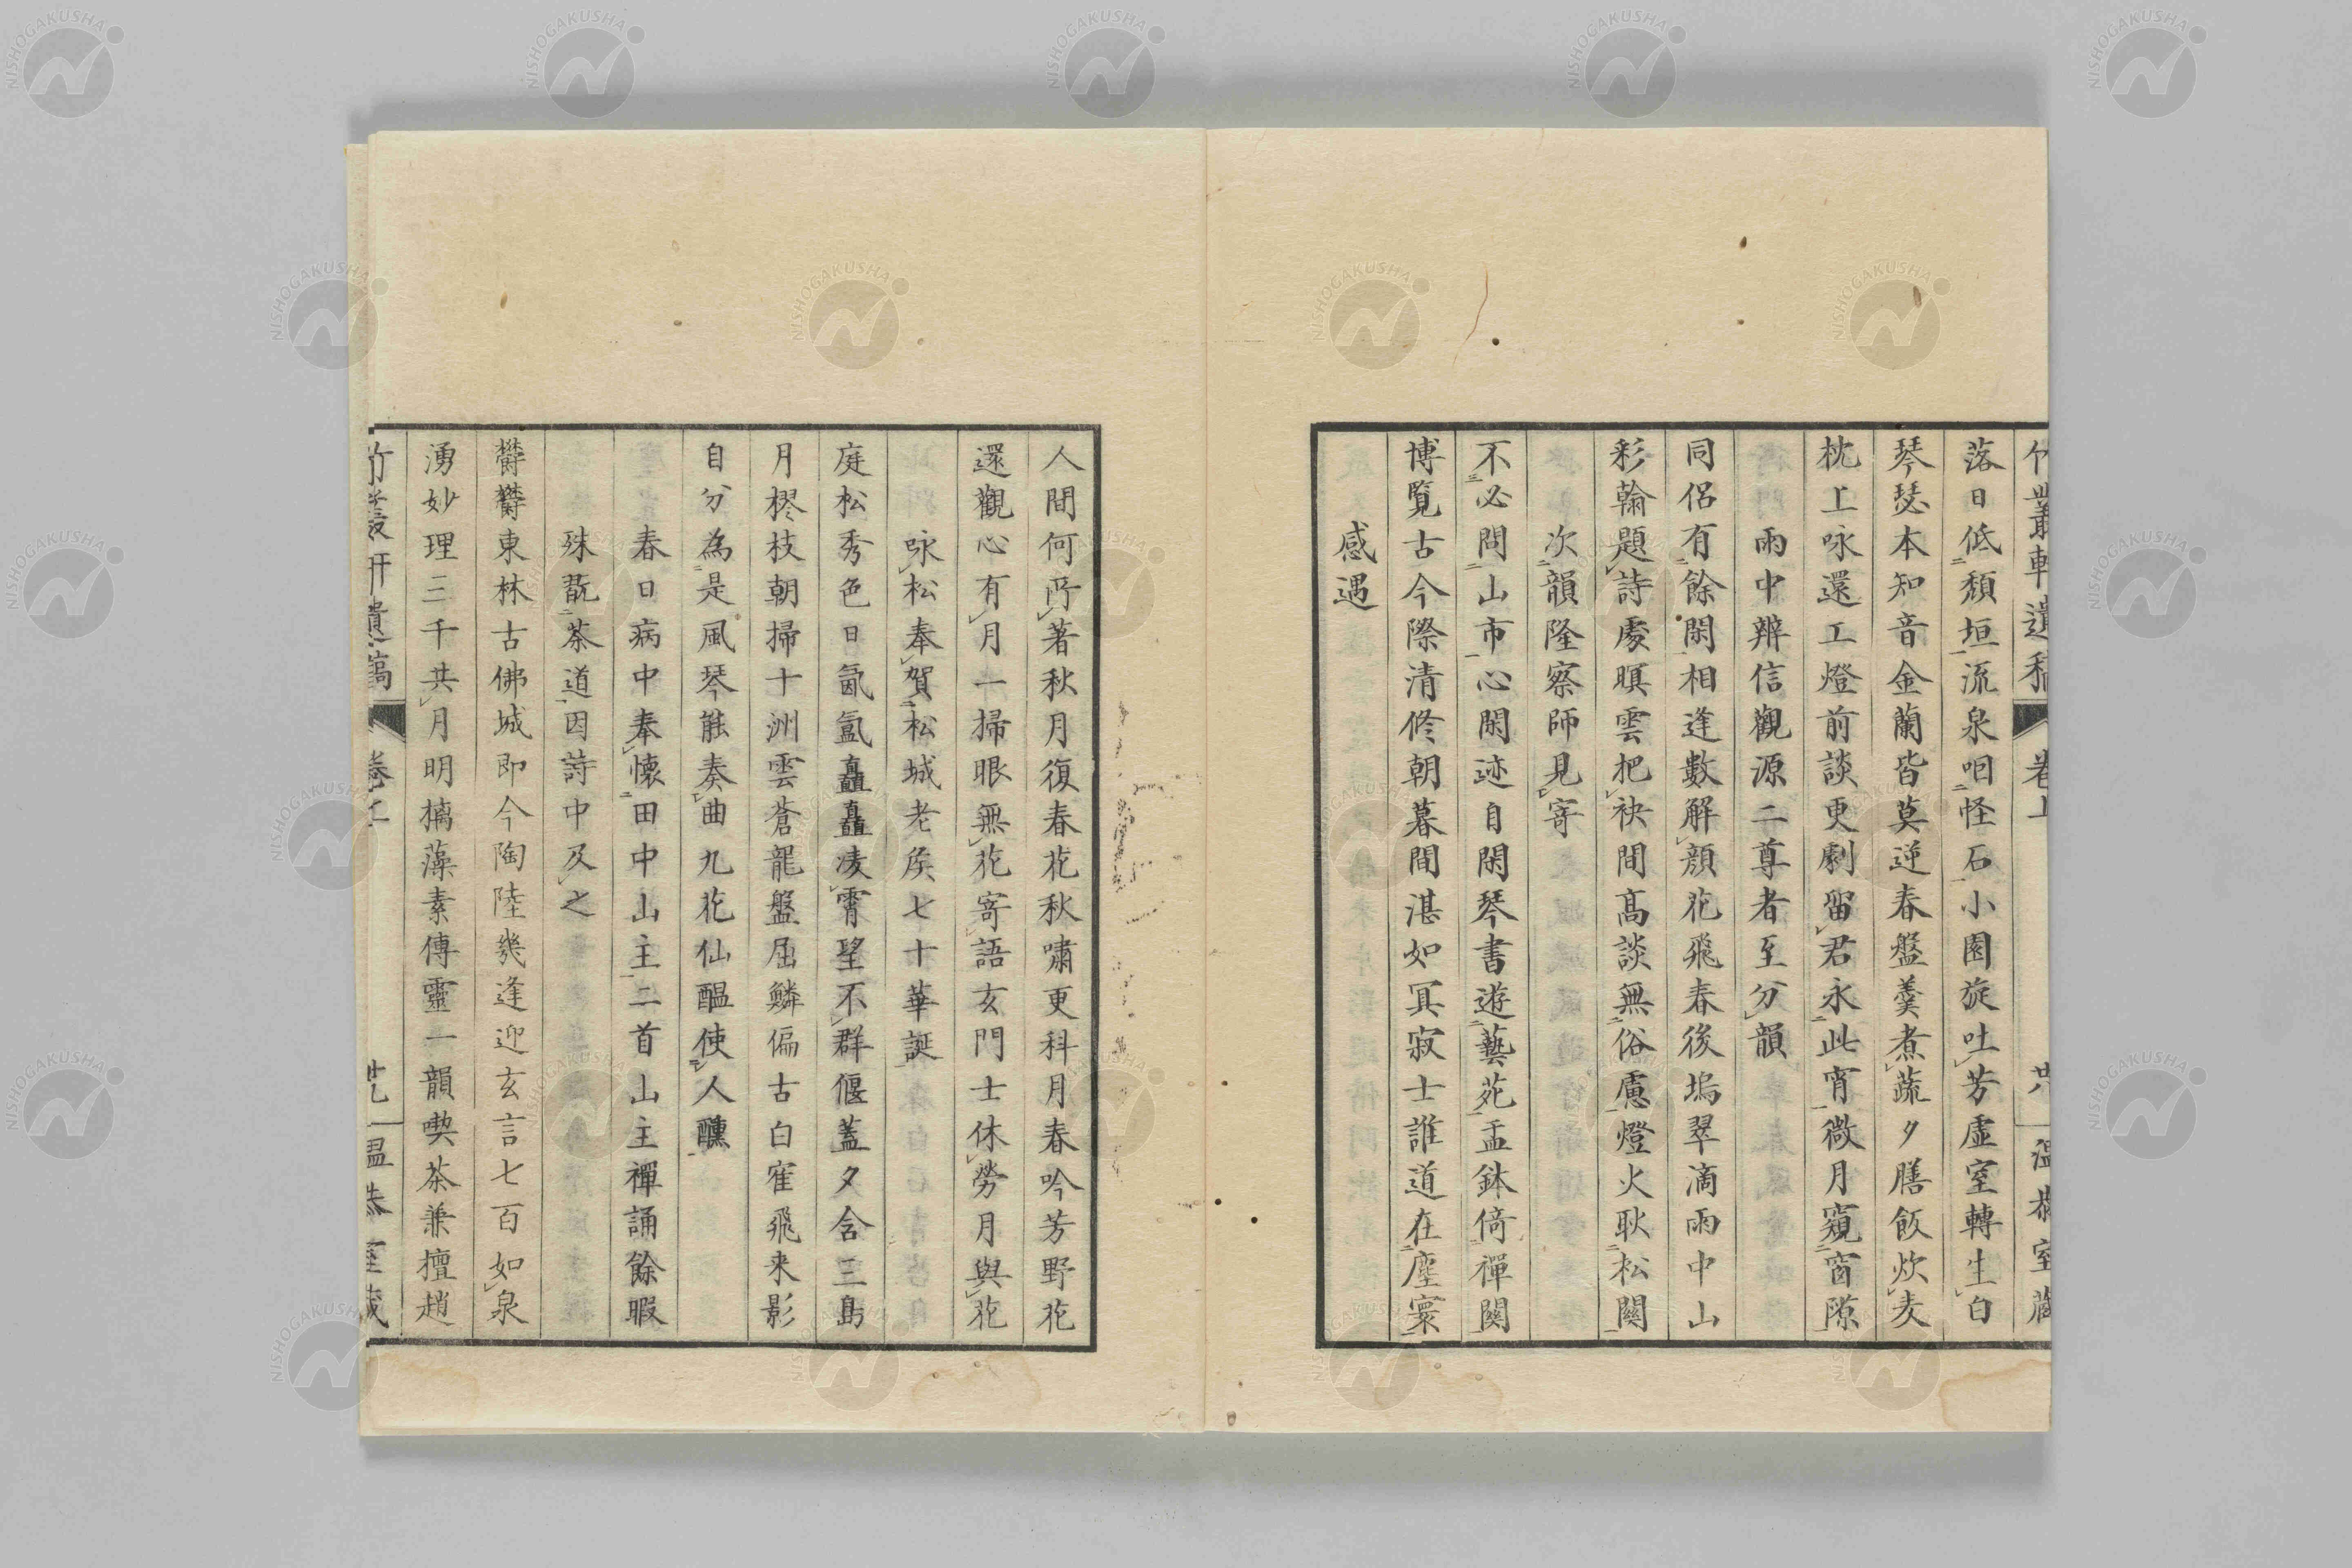 竹叢軒遺稿 卷上 廿八 溫恭室藏
落日低頽垣流泉咽怪石小園旋吐芳虛室轉生白
琴瑟本知音金蘭皆莫逆春盤羹煮蔬夕膳飯炊麦
枕上咏還工燈前談更劇留君永此宵微月窺窗隙
雨中辨信觀源二尊者至分韻
同侶有餘閑相逢數解顔花飛春後塢翠滴雨中山
彩翰題詩處暝雲把袂間高談無俗慮燈火耿松關
次韻隆察師見寄
不必問山市心閑迹自閑琴書遊藝苑盂鉢倚禪關
博覧古今際清修朝暮間湛如冥寂士誰道在塵寰
感遇
人間何所著秋月復春花秋嘯更科月春吟芳野花
還觀心有月一掃眼無花寄語玄門士休勞月與花
咏松奉賀松城老侯七十華誕
庭松秀色日氤氳矗矗凌霄望不群偃蓋夕含三島
月樛枝朝掃十洲雲蒼龍盤屈鱗偏古白隺飛来影
自分為是風琴能奏曲九花仙醞使人醺
春日病中奉懷田中山主二首山主禪誦餘暇
殊翫茶道因詩中及之
欝欝東林古佛城即今陶陸幾逢迎玄言七百如泉
湧妙理三千共月明摛藻素傳靈一韻喫茶兼擅趙
竹叢軒遺稿 卷上 廿九 溫恭室藏
NISHOGAKUSHA